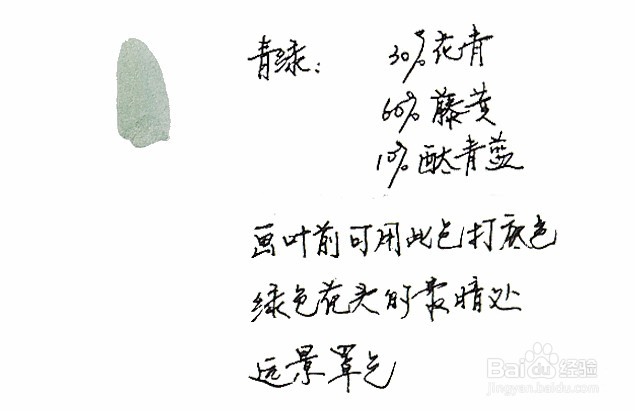 青绿： 30%花青
60%藤黄
10%酞青蓝
画叶前可用此色打底色
绿色花头的最暗处
远景罩色
Baidu经验
jingyan.baidu.com